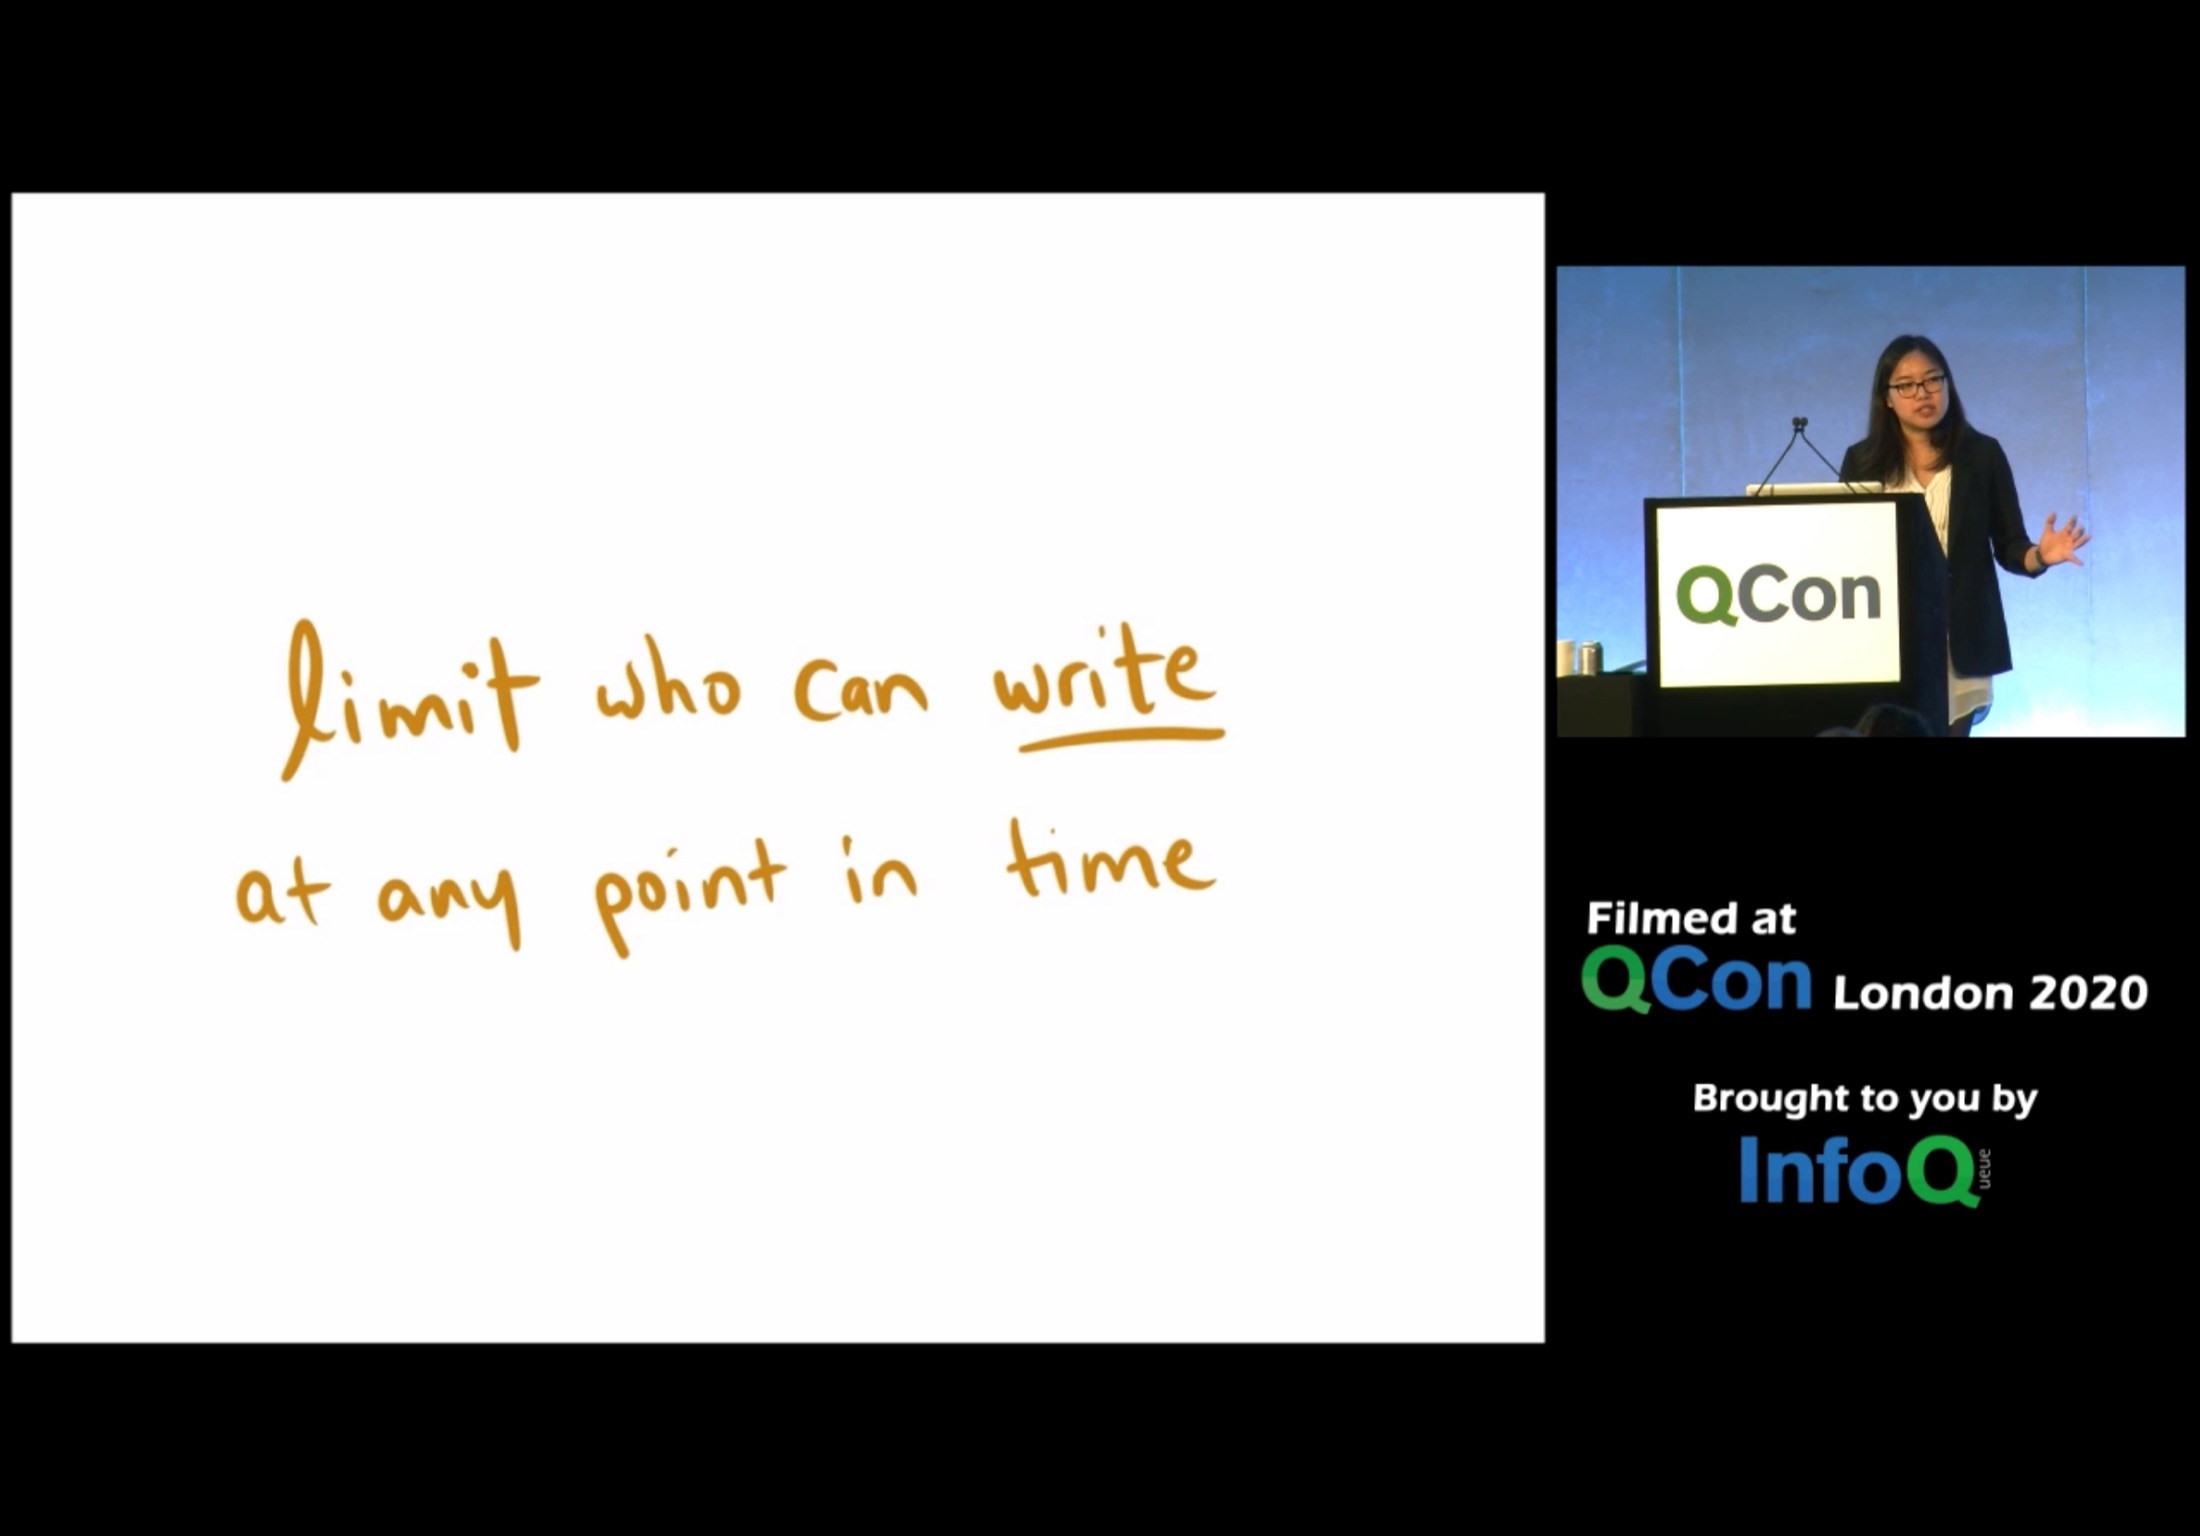 limit who can write
at any point in time
QCon
Filmed at
QCon London 2020
Brought to you by
InfoQ
ueue